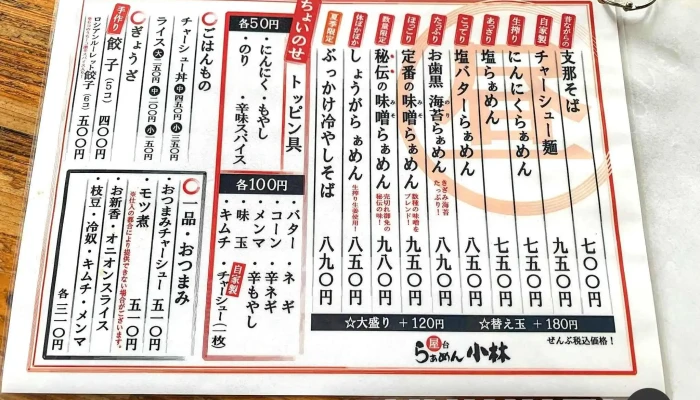 昔ながらの 支那そば 七〇〇円
自家製 チャーシュー麺 九五〇円
生搾り にんにくらぁめん 七五〇円
あっさり 塩らぁめん 七五〇円
こってり 塩バターらぁめん 八五〇円
たっぷり お歯黒 海苔らぁめん きざみ海苔たっぷり！ 八九〇円
ほっこり 定番の味噌らぁめん 数種の味噌をブレンド！ 八五〇円
数量限定 秘伝の味噌らぁめん 売切れ御免の秘伝の味！ 九八〇円
体ぽかぽか しょうがらぁめん 生搾り生姜使用！ 八五〇円
夏季限定 ぶっかけ冷やしそば 八九〇円
☆大盛り ＋120円 ☆替え玉 ＋180円
ぜんぶ税込価格！
屋台 らぁめん 小林
ちょいのせ トッピン具
各50円
・にんにく ・もやし
・のり ・辛味スパイス
各100円
・バター ・ネギ
・コーン ・辛ネギ
・メンマ ・辛もやし
・味玉 自家製 ・チャーシュー(一枚)
・キムチ
ごはんもの
チャーシュー丼 中 四五〇円 小 三五〇円
ライス 大 二五〇円 中 二〇〇円 小 一五〇円
ぎょうざ
手作り 餃子（5コ） 四〇〇円
ロシアンルーレット餃子（6コ） 五〇〇円
一品・おつまみ
・おつまみチャーシュー 五一〇円
・モツ煮 五一〇円
※仕入の都合により提供できない場合がございます。
・お新香・オニオンスライス
・枝豆・冷奴・キムチ・メンマ
各 三一〇円